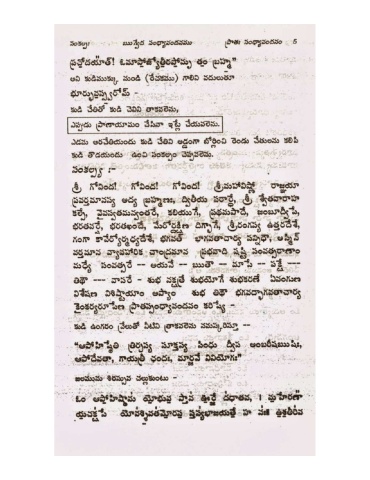 సంకల్పః ఋగ్వేద సంధ్యావందనము ప్రాతః సంధ్యావందనం 5
ప్రచోదయాత్! ఓమాపోజ్యోతీరసోమృతం బ్రహ్మ"
అని కుడిముక్కు నుండి (రేచకము) గాలిని వదులుతూ
భూర్భువస్సువరోమ్ -
కుడి చేతితో కుడి చెవిని తాకవలెను,
ఎప్పుడు ప్రాణాయామం చేసినా ఇట్లే చేయవలెను.
ఎడమ అరచేతియందు కుడి చేతిని అడ్డంగా బోర్లించి రెండు చేతులను కలిపి
కుడి తొడయందు ఉంచి సంకల్పం చెప్పవలెను.
సంకల్పః :-
శ్రీ గోవింద! గోవింద! గోవింద! శ్రీమహావిష్ణో రాజ్ఞయా
ప్రవర్తమానస్య అద్య బ్రహ్మణః, ద్వితీయ పరార్థే, శ్రీ శ్వేతవరాహ
కల్పే, వైవస్వతమన్వంతరే, కలియుగే, ప్రథమపాదే, జంబూద్వీపే,
భరతవర్షే, భరతఖండే, మేరోర్దక్షిణ దిగ్భాగే, శ్రీరంగస్య ఉత్తరదేశే,
గంగా కావేర్యోర్మధ్యదేశే, భగవత్ భాగవతాచార్య సన్నిధౌ, అస్మిన్
వర్తమాన వ్యావహారిక చాంద్రమాన ప్రభవాది షష్టి సంవత్సరాణాం
మధ్యే సంవత్సరే -- ఆయనే -- ఋతౌ -- మాసే -- పక్షే
తిథౌ --- వాసరే - శుభ నక్షత్రే శుభయోగే శుభకరణే ఏవంగుణ
విశేషణ విశిష్టాయాం అస్యాం శుభ తిథౌ భగవద్భాగవతాచార్య
కైంకర్యరూపేణ ప్రాతస్సంధ్యావందనం కరిష్యే -
కుడి ఉంగరం వ్రేలుతో నీటిని త్రాకవలెను నమస్కరిస్తూ --
"ఆపోహిష్ఠేతి త్రిర్చస్య సూక్తస్య సింధు ద్వీప ఆంబరీషఋషిః,
ఆపోదేవతా, గాయత్రీ ఛందః, మార్జనే వినియోగః"
జలమును శిరస్సున చల్లుకుంటు -
ఓం ఆపోహిష్ఠామ యోభువ స్తాన ఊర్జే దధాతన,